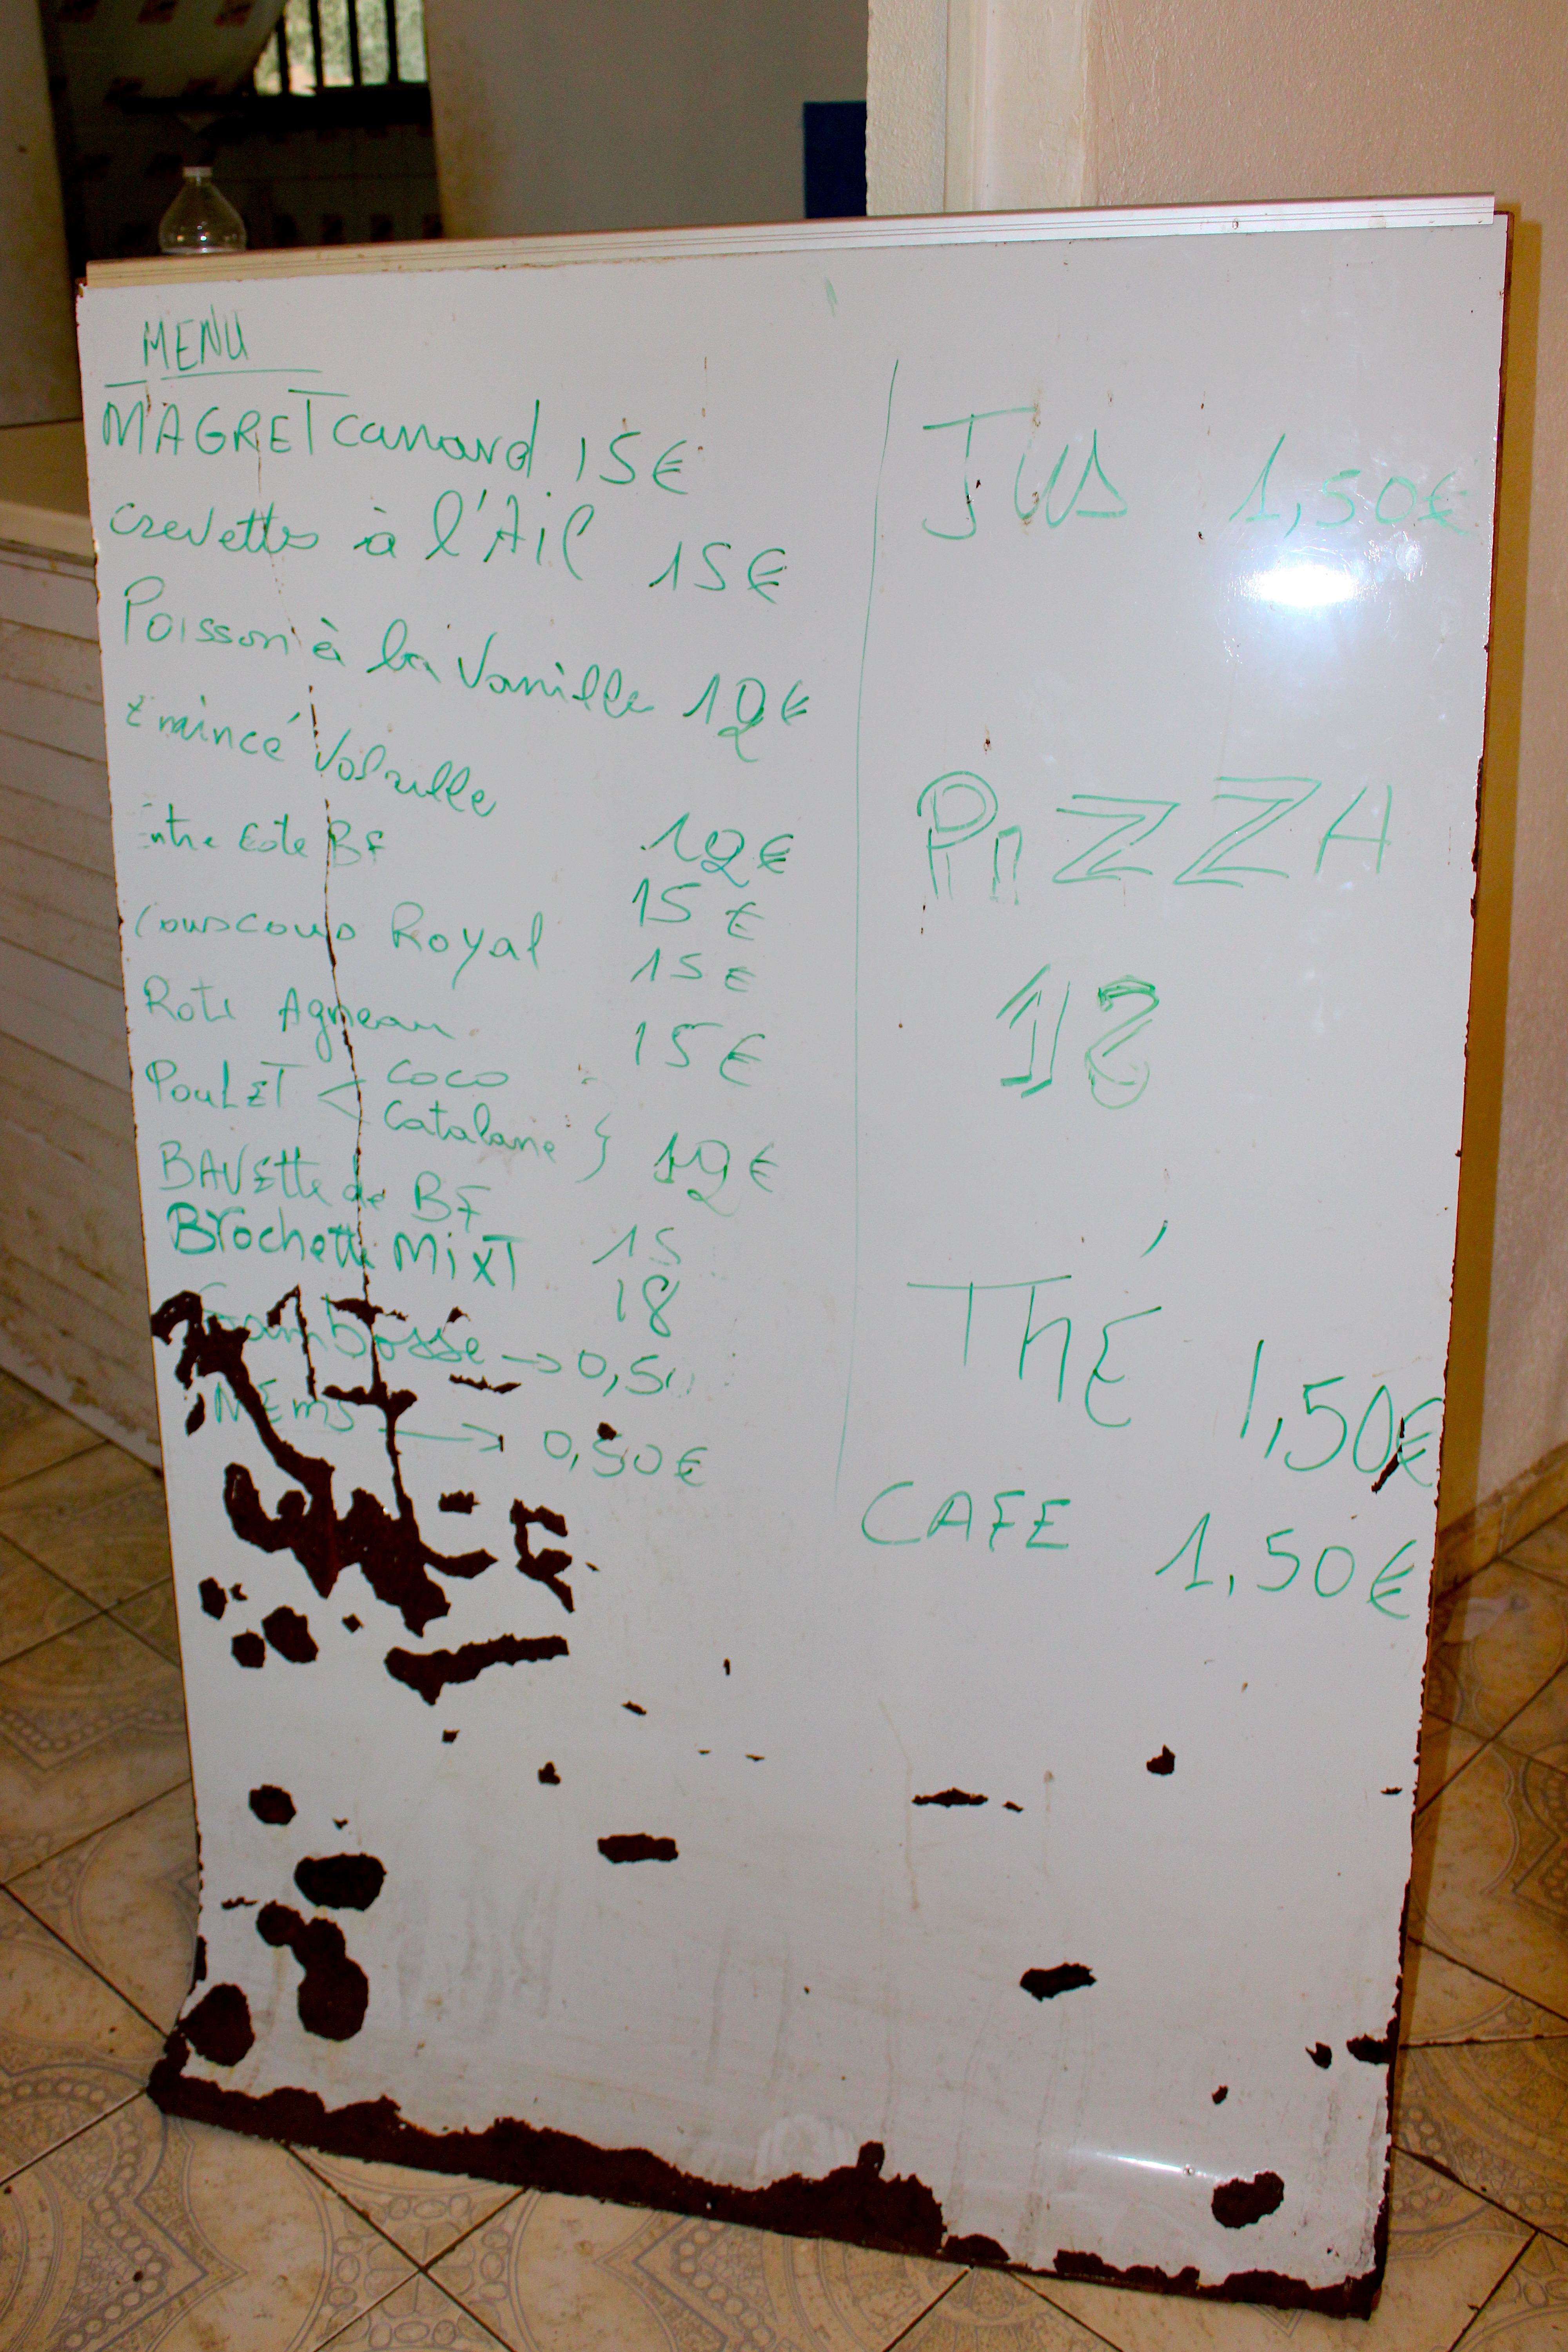 MENU
MAGRET canard 15€
crevettes à l'Ail 15€
Poisson à la Vanille 12€
Emincé Volaille 12€
Entre Cote BF 15€
Couscous Royal 15€
Roti Agneau 15€
PoulET < coco
Catalane } 12€
BAVEtte de BF 15
Brochette MixT 18
Sambosse → 0,50
NEms → 0,50€
Jus 1,50€
PiZZA
12
ThÉ 1,50€
CAFE 1,50€